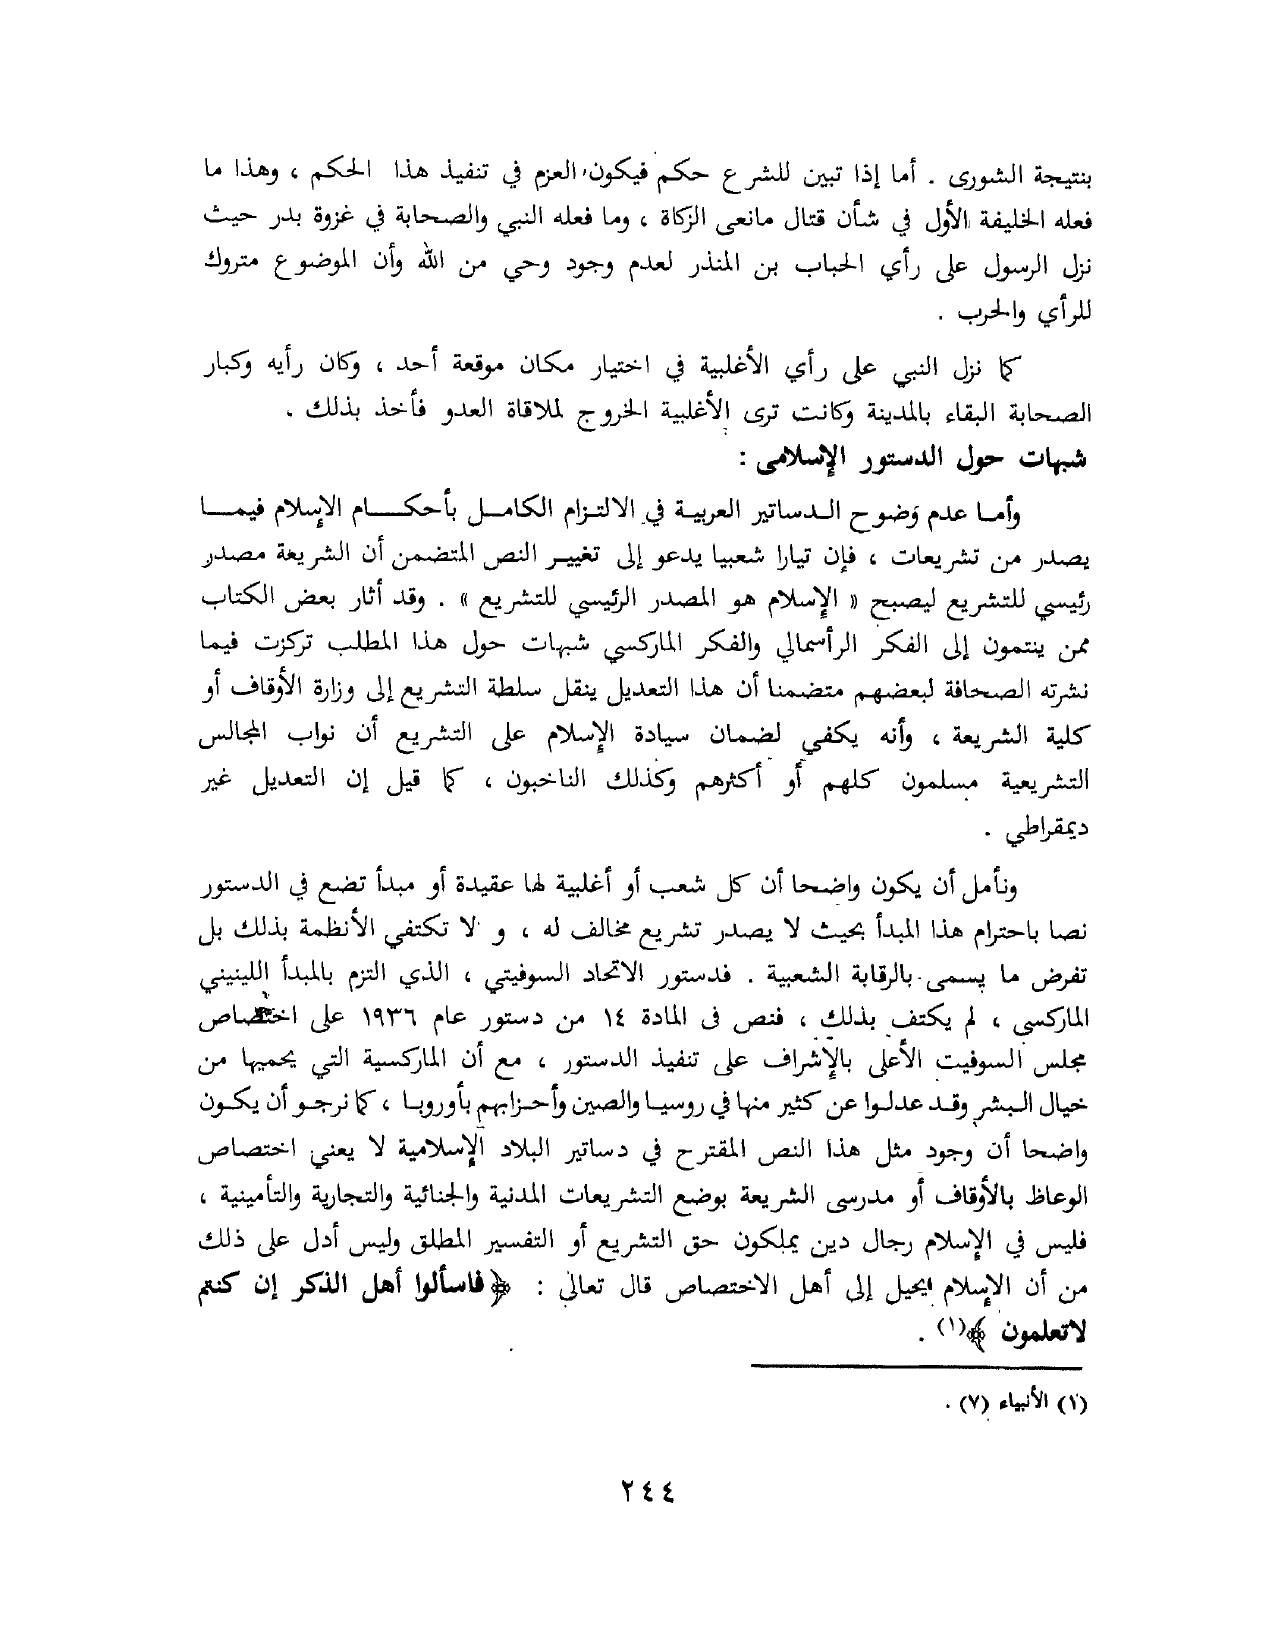 بنتيجة الشورى . أما إذا تبين للشرع حكم فيكون العزم في تنفيذ هذا الحكم ، وهذا ما
فعله الخليفة الأول في شأن قتال مانعى الزكاة ، وما فعله النبي والصحابة في غزوة بدر حيث
نزل الرسول على رأي الحباب بن المنذر لعدم وجود وحي من الله وأن الموضوع متروك
للرأي والحرب .
كما نزل النبي على رأي الأغلبية في اختيار مكان موقعة أحد ، وكان رأيه وكبار
الصحابة البقاء بالمدينة وكانت ترى الأغلبية الخروج لملاقاة العدو فأخذ بذلك .
شبهات حول الدستور الإسلامى :
وأما عدم وضوح الدساتير العربية في الالتزام الكامل بأحكام الإسلام فيما
يصدر من تشريعات ، فإن تيارا شعبيا يدعو إلى تغيير النص المتضمن أن الشريعة مصدر
رئيسي للتشريع ليصبح « الإسلام هو المصدر الرئيسي للتشريع » . وقد أثار بعض الكتاب
ممن ينتمون إلى الفكر الرأسمالي والفكر الماركسي شبهات حول هذا المطلب تركزت فيما
نشرته الصحافة لبعضهم متضمنا أن هذا التعديل ينقل سلطة التشريع إلى وزارة الأوقاف أو
كلية الشريعة ، وأنه يكفي لضمان سيادة الإسلام على التشريع أن نواب المجالس
التشريعية مسلمون كلهم أو أكثرهم وكذلك الناخبون ، كما قيل إن التعديل غير
ديمقراطي .
ونأمل أن يكون واضحا أن كل شعب أو أغلبية لها عقيدة أو مبدأ تضع في الدستور
نصا باحترام هذا المبدأ بحيث لا يصدر تشريع مخالف له ، و لا تكتفي الأنظمة بذلك بل
تفرض ما يسمى بالرقابة الشعبية . فدستور الاتحاد السوفيتي ، الذي التزم بالمبدأ اللينيني
الماركسى ، لم يكتف بذلك ، فنص فى المادة ١٤ من دستور عام ١٩٣٦ على اختصاص
مجلس السوفيت الأعلى بالإشراف على تنفيذ الدستور ، مع أن الماركسية التي يحميها من
خيال البشر وقد عدلوا عن كثير منها في روسيا والصين وأحزابهم بأوروبا ، كما نرجو أن يكون
واضحا أن وجود مثل هذا النص المقترح في دساتير البلاد الإسلامية لا يعني اختصاص
الوعاظ بالأوقاف أو مدرسى الشريعة بوضع التشريعات المدنية والجنائية والتجارية والتأمينية ،
فليس في الإسلام رجال دين يملكون حق التشريع أو التفسير المطلق وليس أدل على ذلك
من أن الإسلام يحيل إلى أهل الاختصاص قال تعالى : ﴿ فاسألوا أهل الذكر إن كنتم
لاتعلمون ﴾(١) .
(١) الأنبياء (٧) .
٢٤٤